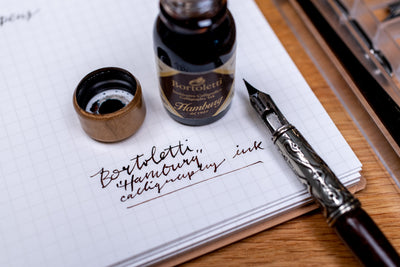 Bortoletti
Hamburg
Bortoletti
"Hamburg"
calligraphy ink